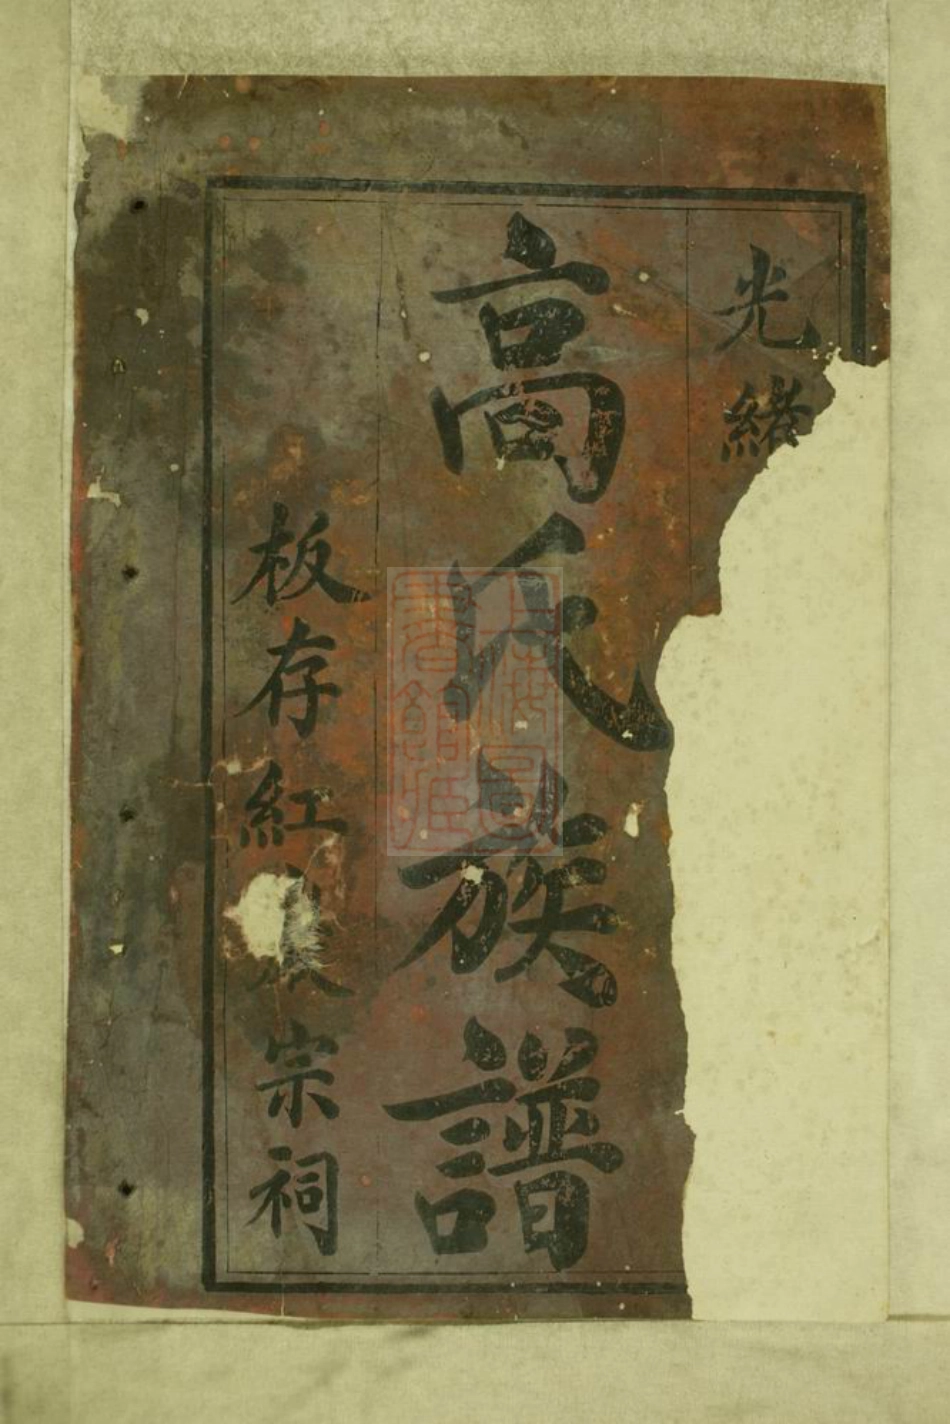 光緒
高氏族譜
板存紅宗祠